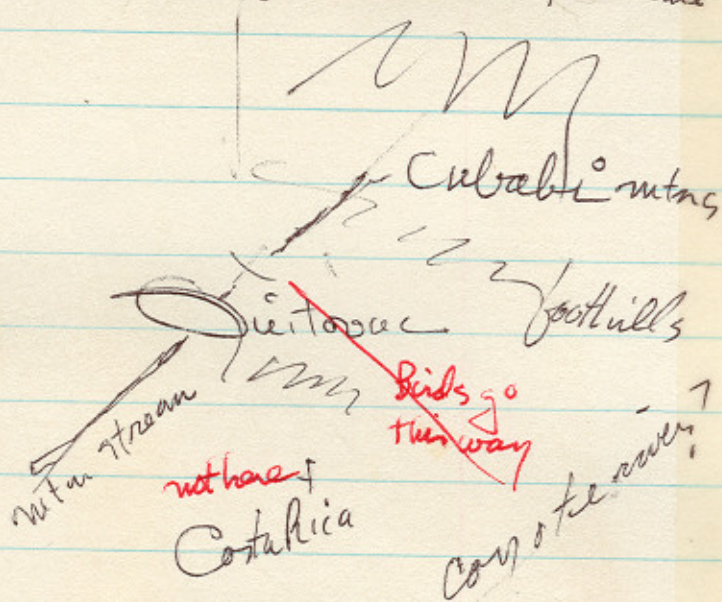 Cubabi mtns
foothills
Quitovac
Birds go
this way
mtn stream
not here
Costa Rica
coyote river?